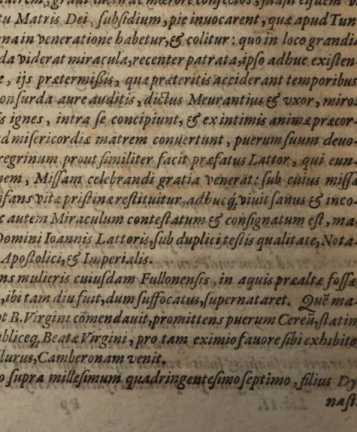 tu Matris Dei, subsidium, pie inuocarent, quæ apud Tun
na in veneratione habetur, & colitur: quo in loco grandia
da viderat miracula, recenter patrata, ipso adhuc existen-
e, ijs prætermissis, quæ præteritis acciderant temporibus
on surda aure auditis, dictus Meurantius & vxor, miro
is ignes, intra se concipiunt, & ex intimis animæ præcor-
d misericordiæ matrem conuertunt, puerum suum deuo-
regrinum prout similiter facit præfatus Lattor, qui eun-
em, Missam celebrandi gratia venerat: sub cuius missa
ifans vitæ pristinæ restituitur, adhuc q́, viuit sanus & inco-
c autem Miraculum contestatum & consignatum est, ma
Domini Ioannis Lattoris, sub duplici testis qualitate, Nota
Apostolici, & Imperialis.
ns mulieris cuiusdam Fullonensis, in aquis præaltæ fossæ
, ibi tam diu fuit, dum suffocatus, supernataret. Quē ma-
ot B. Virgini cōmendauit, promittens puerum Cereū, statim
ublicèq, Beatæ Virgini, pro tam eximio fauore sibi exhibito
lurus, Camberonam venit.
o supra millesimum quadringentesimo septimo, filius Dy
nast